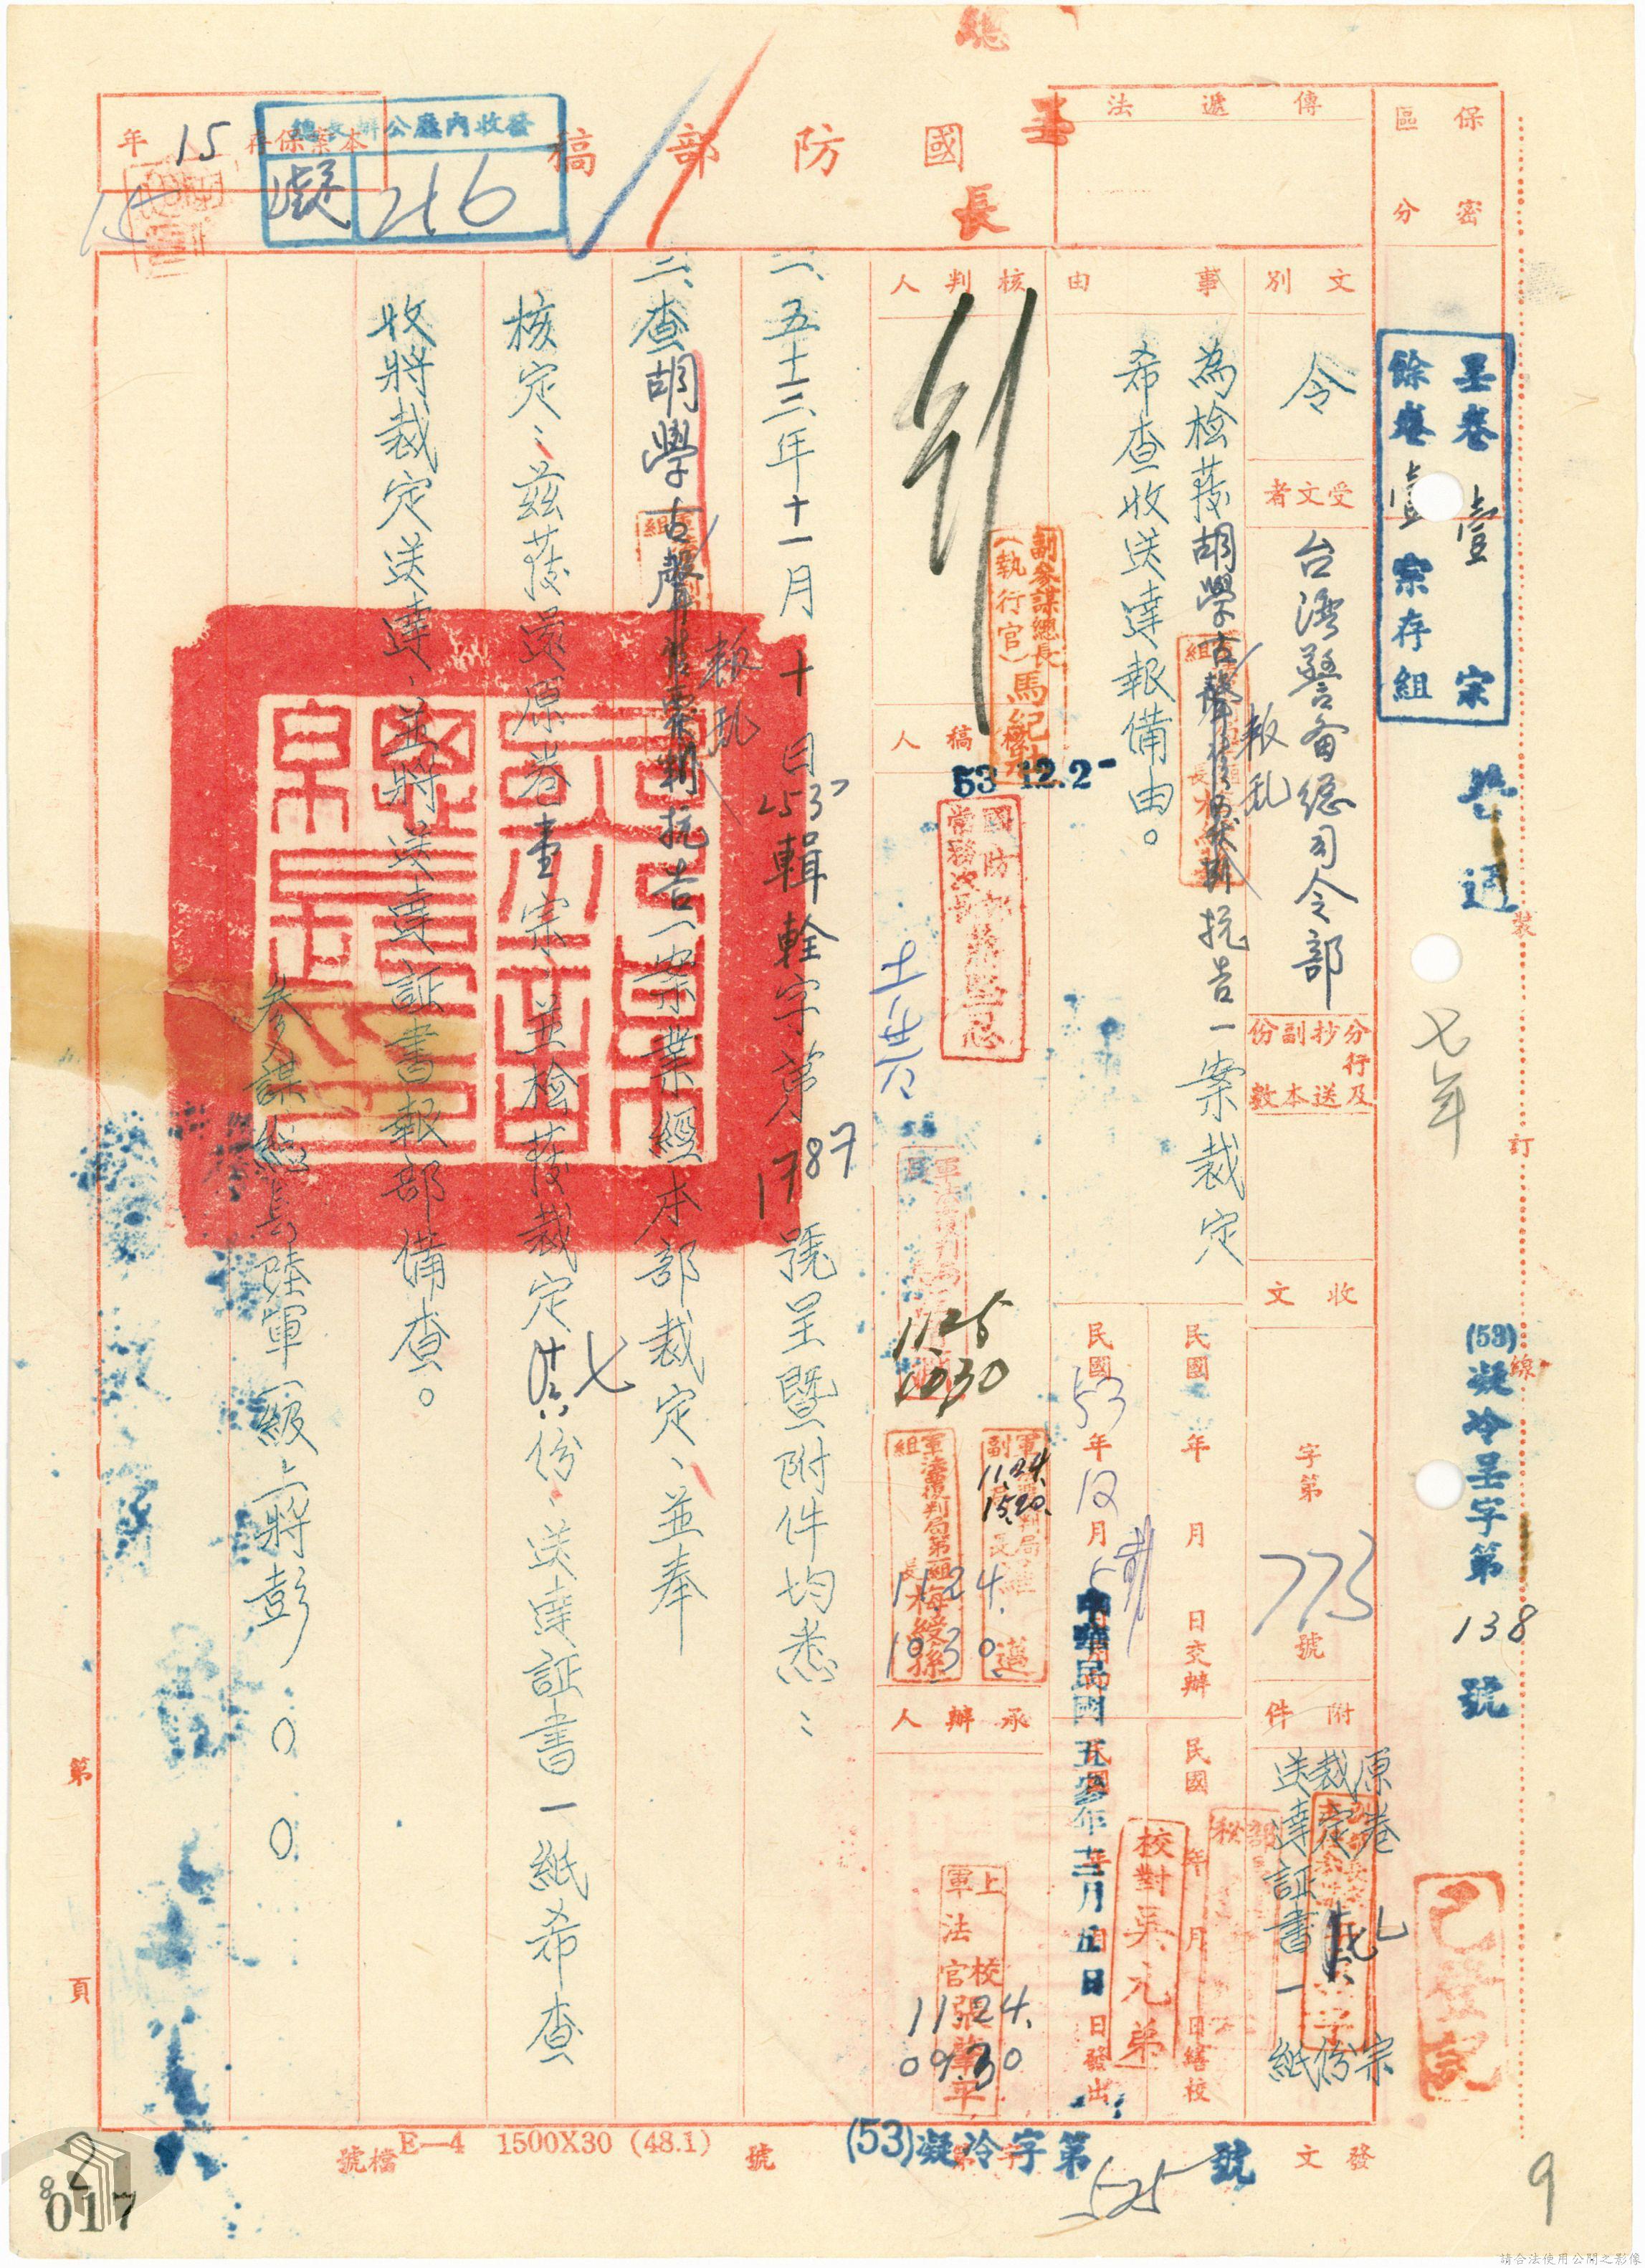 國防部稿
保密
區分
傳遞法
本案保存
15
年
總長辦公廳內收發
凝
216
總
長
墨卷壹宗
餘卷壹宗存組
普通
七年
(53)凝冷呈字第138號
裝
訂
線
文別
令
受文者
台灣警备總司令部
分行及抄送副本份數
收文
字第773號
附件
原卷
宗
裁定
七
份
送達証書一紙
事由
為檢發胡學古聲
叛乱
抗告一案裁定
希查收送達報備由。
民國 年 月 日交辦
民國 年 月 日繕校
民國53年12月
中華民國五參年十二月五日
日發出
校對吳元弟
核判人
副參謀總長
(執行官)馬紀壯
53 12.2
核稿人
國防部
常務次長
11.25
1030
11.24.
15.20.
軍法覆判局第一組
組長梅綬蓀
11.24.
1030
承辦人
上校
軍法官張
11.24.
09.30
一、五十三年十一月十日(53)輯輇字第1787號呈暨附件均悉:
二、查胡學古聲
叛乱
抗告一案業經本部裁定、並奉
核定:茲發還原卷壹宗、並檢發裁定
七
份、送達証書一紙希查
收將裁定送達、並將送達証書報部備查。
參謀總長陸軍一級上將彭〇〇
已登記
第 頁
檔號
E—4 1500X30 (48.1)
號
發文
(53)凝冷字第525號
2
8
017
9
請合法使用公開之影像